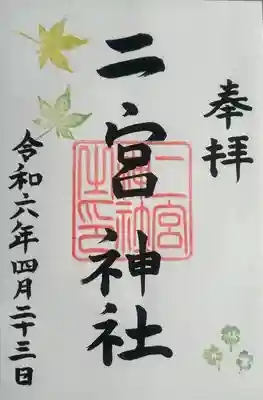 奉拝
二宮神社
二宮神社之印
令和六年四月二十三日